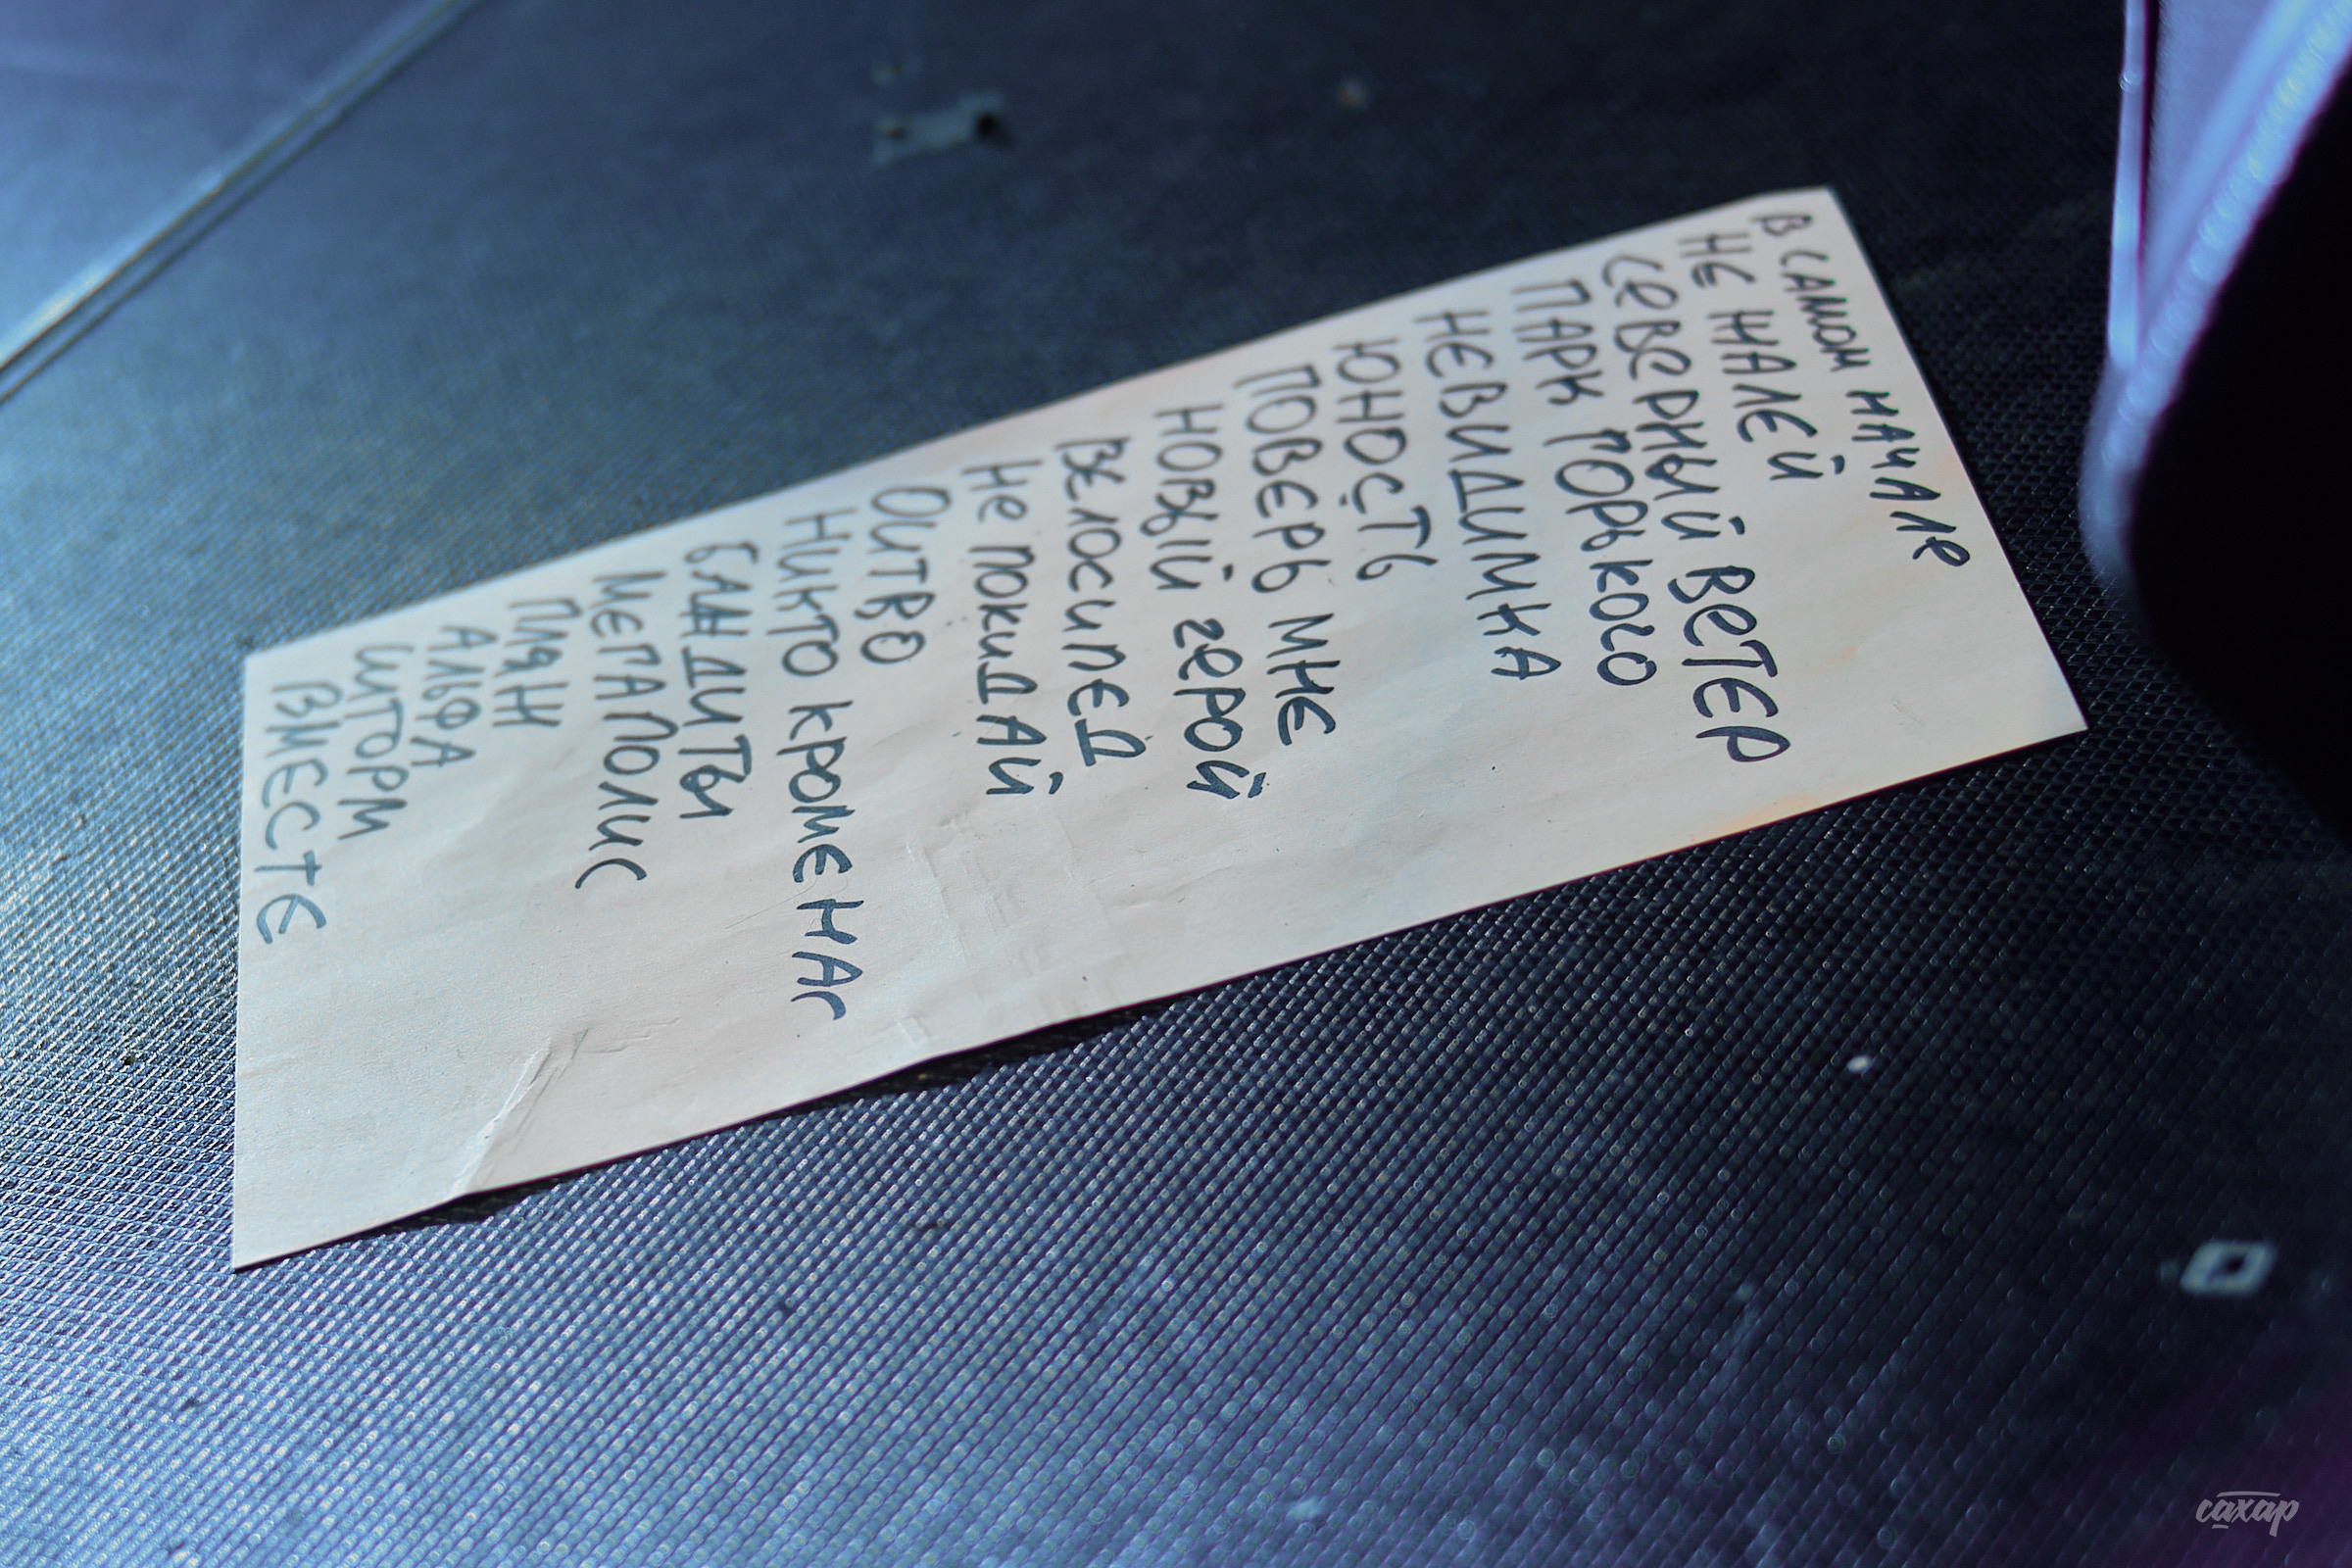 В САМОМ НАЧАЛЕ
НЕ ЖАЛЕЙ
СЕВЕРНЫЙ ВЕТЕР
ПАРК ГОРЬКОГО
НЕВИДИМКА
ЮНОСТЬ
ПОВЕРЬ МНЕ
НОВЫЙ ГЕРОЙ
ВЕЛОСИПЕД
НЕ ПОКИДАЙ
ОИТВО
НИКТО КРОМЕ НАС
БАНДИТЫ
МЕГАПОЛИС
ПЛЯН
АЛЬФА
ШТОРМ
ВМЕСТЕ
сахар